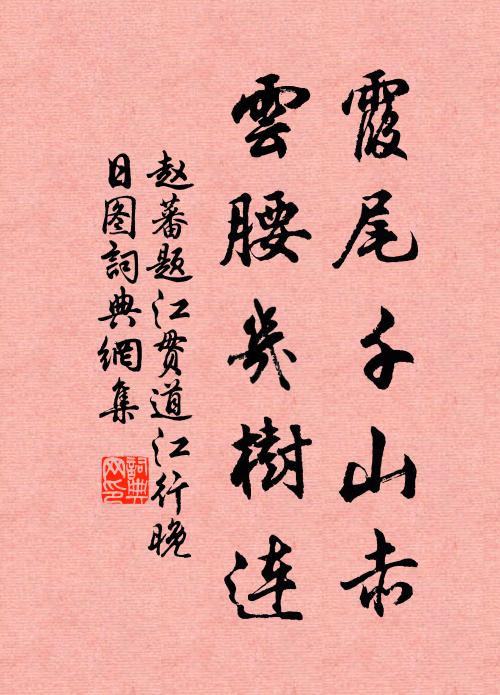 霞尾千山赤
雲腰幾樹连
赵蕃题江贯道江行晚
日图詞典網集
詞典网印